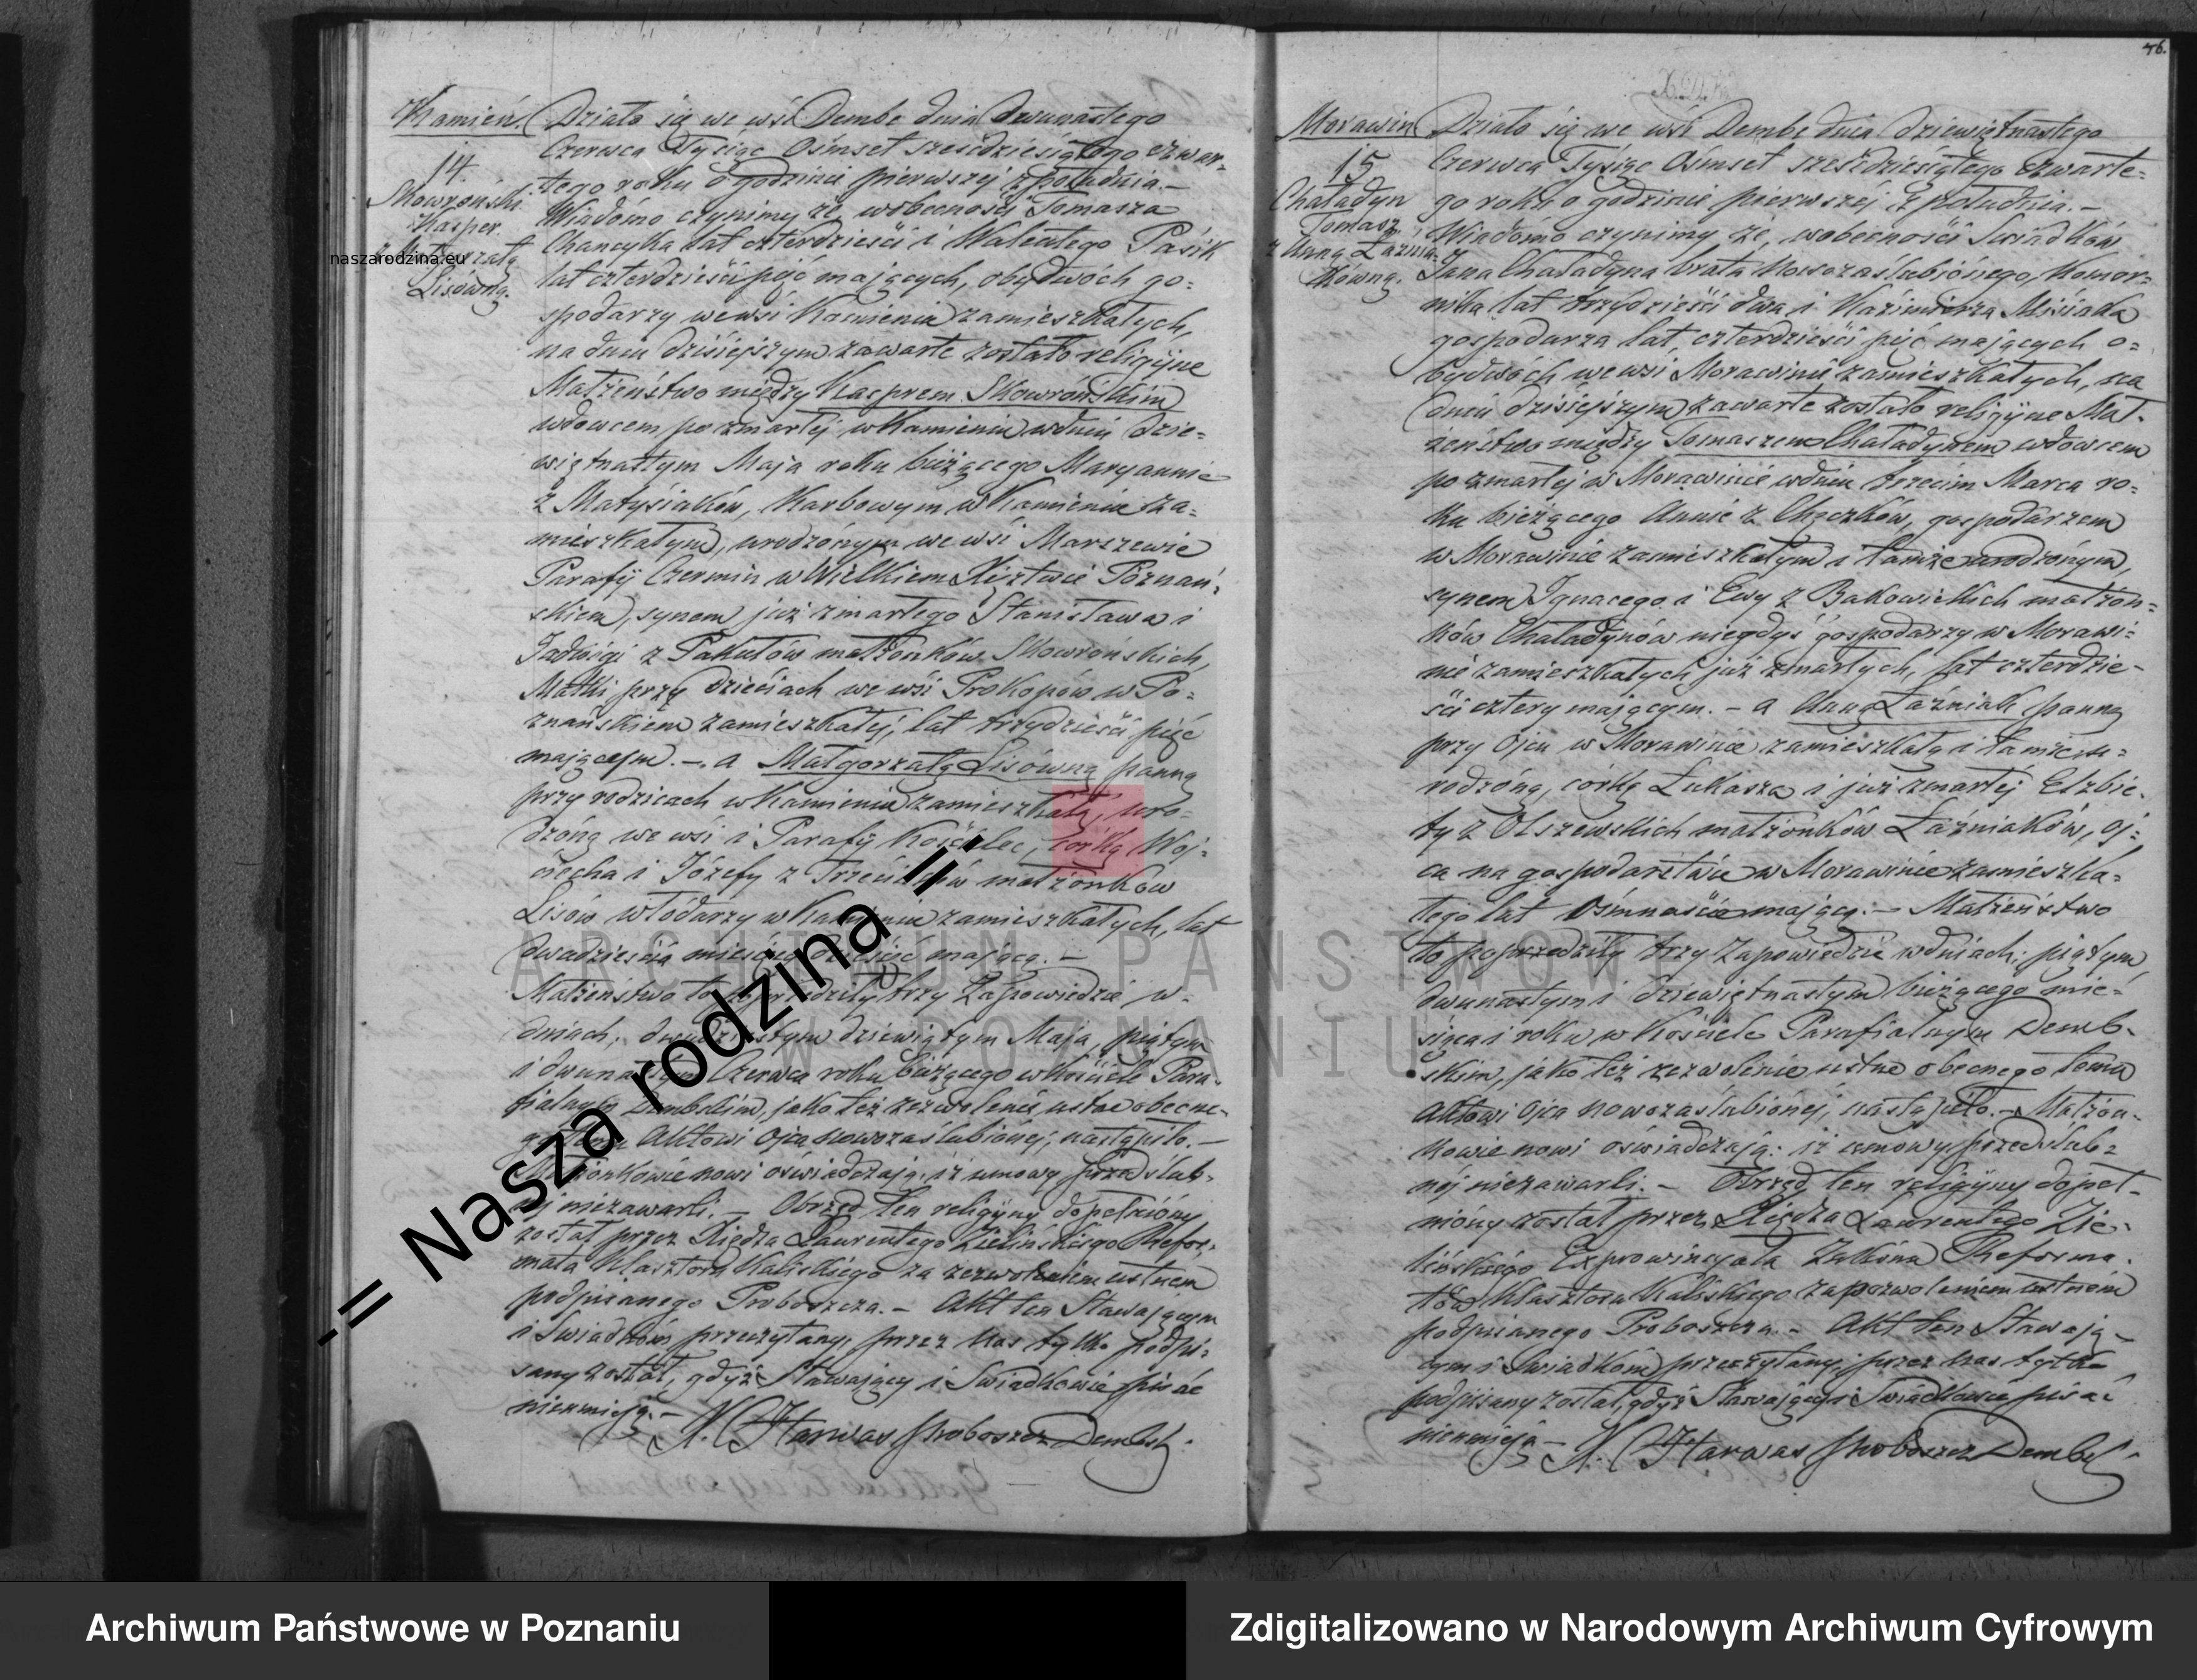 Kamień.
14.
Skowroński
Kasper
z Małgorzatą
Lisówną.
Działo się we wsi Dembe dnia dwunastego
Czerwca Tysiąc Ośmset sześdziesiątego czwar-
tego roku o godzinie pierwszej z południa. –
Wiadomo czynimy że, wobecności Tomasza
lat czterdzieści i Walentego Pasik
lat czterdzieści pięć mających, obydwóch go=
spodarzy we wsi Kamieniu zamieszkałych,
na dniu dzisiejszym zawarte zostało religijne
Małżeństwo między Kacprem Skowrońskim
wdowcem po zmarłej w Kamieniu w dniu dzie=
więtnastym Maja roku bieżącego Maryannie
z Matysiaków, Karbowym w Kamieniu za=
mieszkałym, urodzonym we wsi Marszewie
Parafij Czermin w Wielkiem Xięztwie Poznań=
skiem, synem już zmarłego Stanisława i
Jadwigi z Pakułów małżonków Skowrońskich,
Matki przy dzieciach we wsi Prokopów w Po=
znańskiem zamieszkałej, lat trzydzieści pięć
mającym. – a Małgorzatą Lisówną panną
przy rodzicach w Kamieniu zamieszkałą, uro=
dzoną we wsi i Parafij Kościelec, córką Woj=
ciecha i Józefy z małżonków
Lisów włódarzy w Kamieniu zamieszkałych, lat
dwadzieścia miesięcy mającą. –
Małżeństwo to poprzedziły trzy Zapowiedzie w-
dniach; dwudziestym dziewiątym Maja, piątym
i dwunastym Czerwca roku bieżącego w kościele Para-
fialnym Dembskim, jako też zezwolenie ustne obecne-
go temu Aktowi Ojca nowozaślubionej, nastąpiło. –
Małżonkowie nowi oświadczają, iż umowy przedślub-
nej niezawarli. – Obrzęd ten religijny dopełniony
został przez Xiędza Laurentego Zielińskiego Refor-
mata Klasztoru Kaliskiego za zezwoleniem ustnem
podpisanego Proboszcza. – Akt ten Stawającym
i Świadkom przeczytany, przez nas tylko podpi=
sany został, gdyż Stawający i Świadkowie pisać
nieumieją. –
X. Harwas Proboszcz Dembsk.
46.
Morawin
15
Chaładyn
Tomasz
z Anną Łaźnia-
kówną.
Działo się we wsi Dembe dnia dziewiętnastego
Czerwca Tysiąc Ośmset sześdziesiątego czwarte=
go roku o godzinie pierwszej z południa. –
Wiadomo czynimy że, wobecności Świadków
Jana Chaładyna brata Nowozaślubionego, Komor=
nika lat trzydzieści dwa i Kazimierza Misiaka
gospodarza lat czterdzieści pięć mających o=
bydwóch we wsi Morawinie zamieszkałych, na
dniu dzisiejszym zawarte zostało religijne Mał-
żeństwo między Tomaszem Chaładynem wdowcem
po zmarłej w Morawinie w dniu trzecim Marca ro=
ku bieżącego Annie z gospodarzem
w Morawinie zamieszkałym i tamże urodzonym,
synem Ignacego i Ewy z Bakowickich małżon=
ków Chaładynów niegdyś gospodarzy w Morawi=
nie zamieszkałych już zmarłych, lat czterdzie-
ści cztery mającym. – a Anną Łaźniak panną
przy Ojcu w Morawinie zamieszkałą i tamże u=
rodzoną, córką Łukasza i już zmarłej Elżbie-
ty z Olszewskich małżonków Łaźniaków, Oj=
ca na gospodarstwie w Morawinie zamieszka=
łego lat Ośmnaście mającą. – Małżeństwo
to poprzedziły trzy Zapowiedzie w dniach; piątym,
dwunastym i dziewiętnastym bieżącego mie=
siąca i roku w Kościele Parafialnym Demb-
skim, jako też zezwolenie ustne obecnego temu
Aktowi Ojca nowozaślubionej, nastąpiło. – Małżon-
kowie nowi oświadczają: iż umowy przedślub=
nej niezawarli. – Obrzęd ten religijny dopeł-
niony został przez Xiędza Laurentego Zie-
lińskiego Exprowincyała Zakonu Reforma-
tów Klasztoru Kaliskiego za pozwoleniem ustnem
podpisanego Proboszcza. – Akt ten Stawają-
cym i Świadkom przeczytany, przez nas tylko
podpisany został, gdyż Stawający i Świadkowie pisać
nieumieją –
X. Harwas Proboszcz Dembs
naszarodzina.eu
-= Nasza rodzina =-
ARCHIWUM PAŃSTWOWE
W POZNANIU
Archiwum Państwowe w Poznaniu
Zdigitalizowano w Narodowym Archiwum Cyfrowym